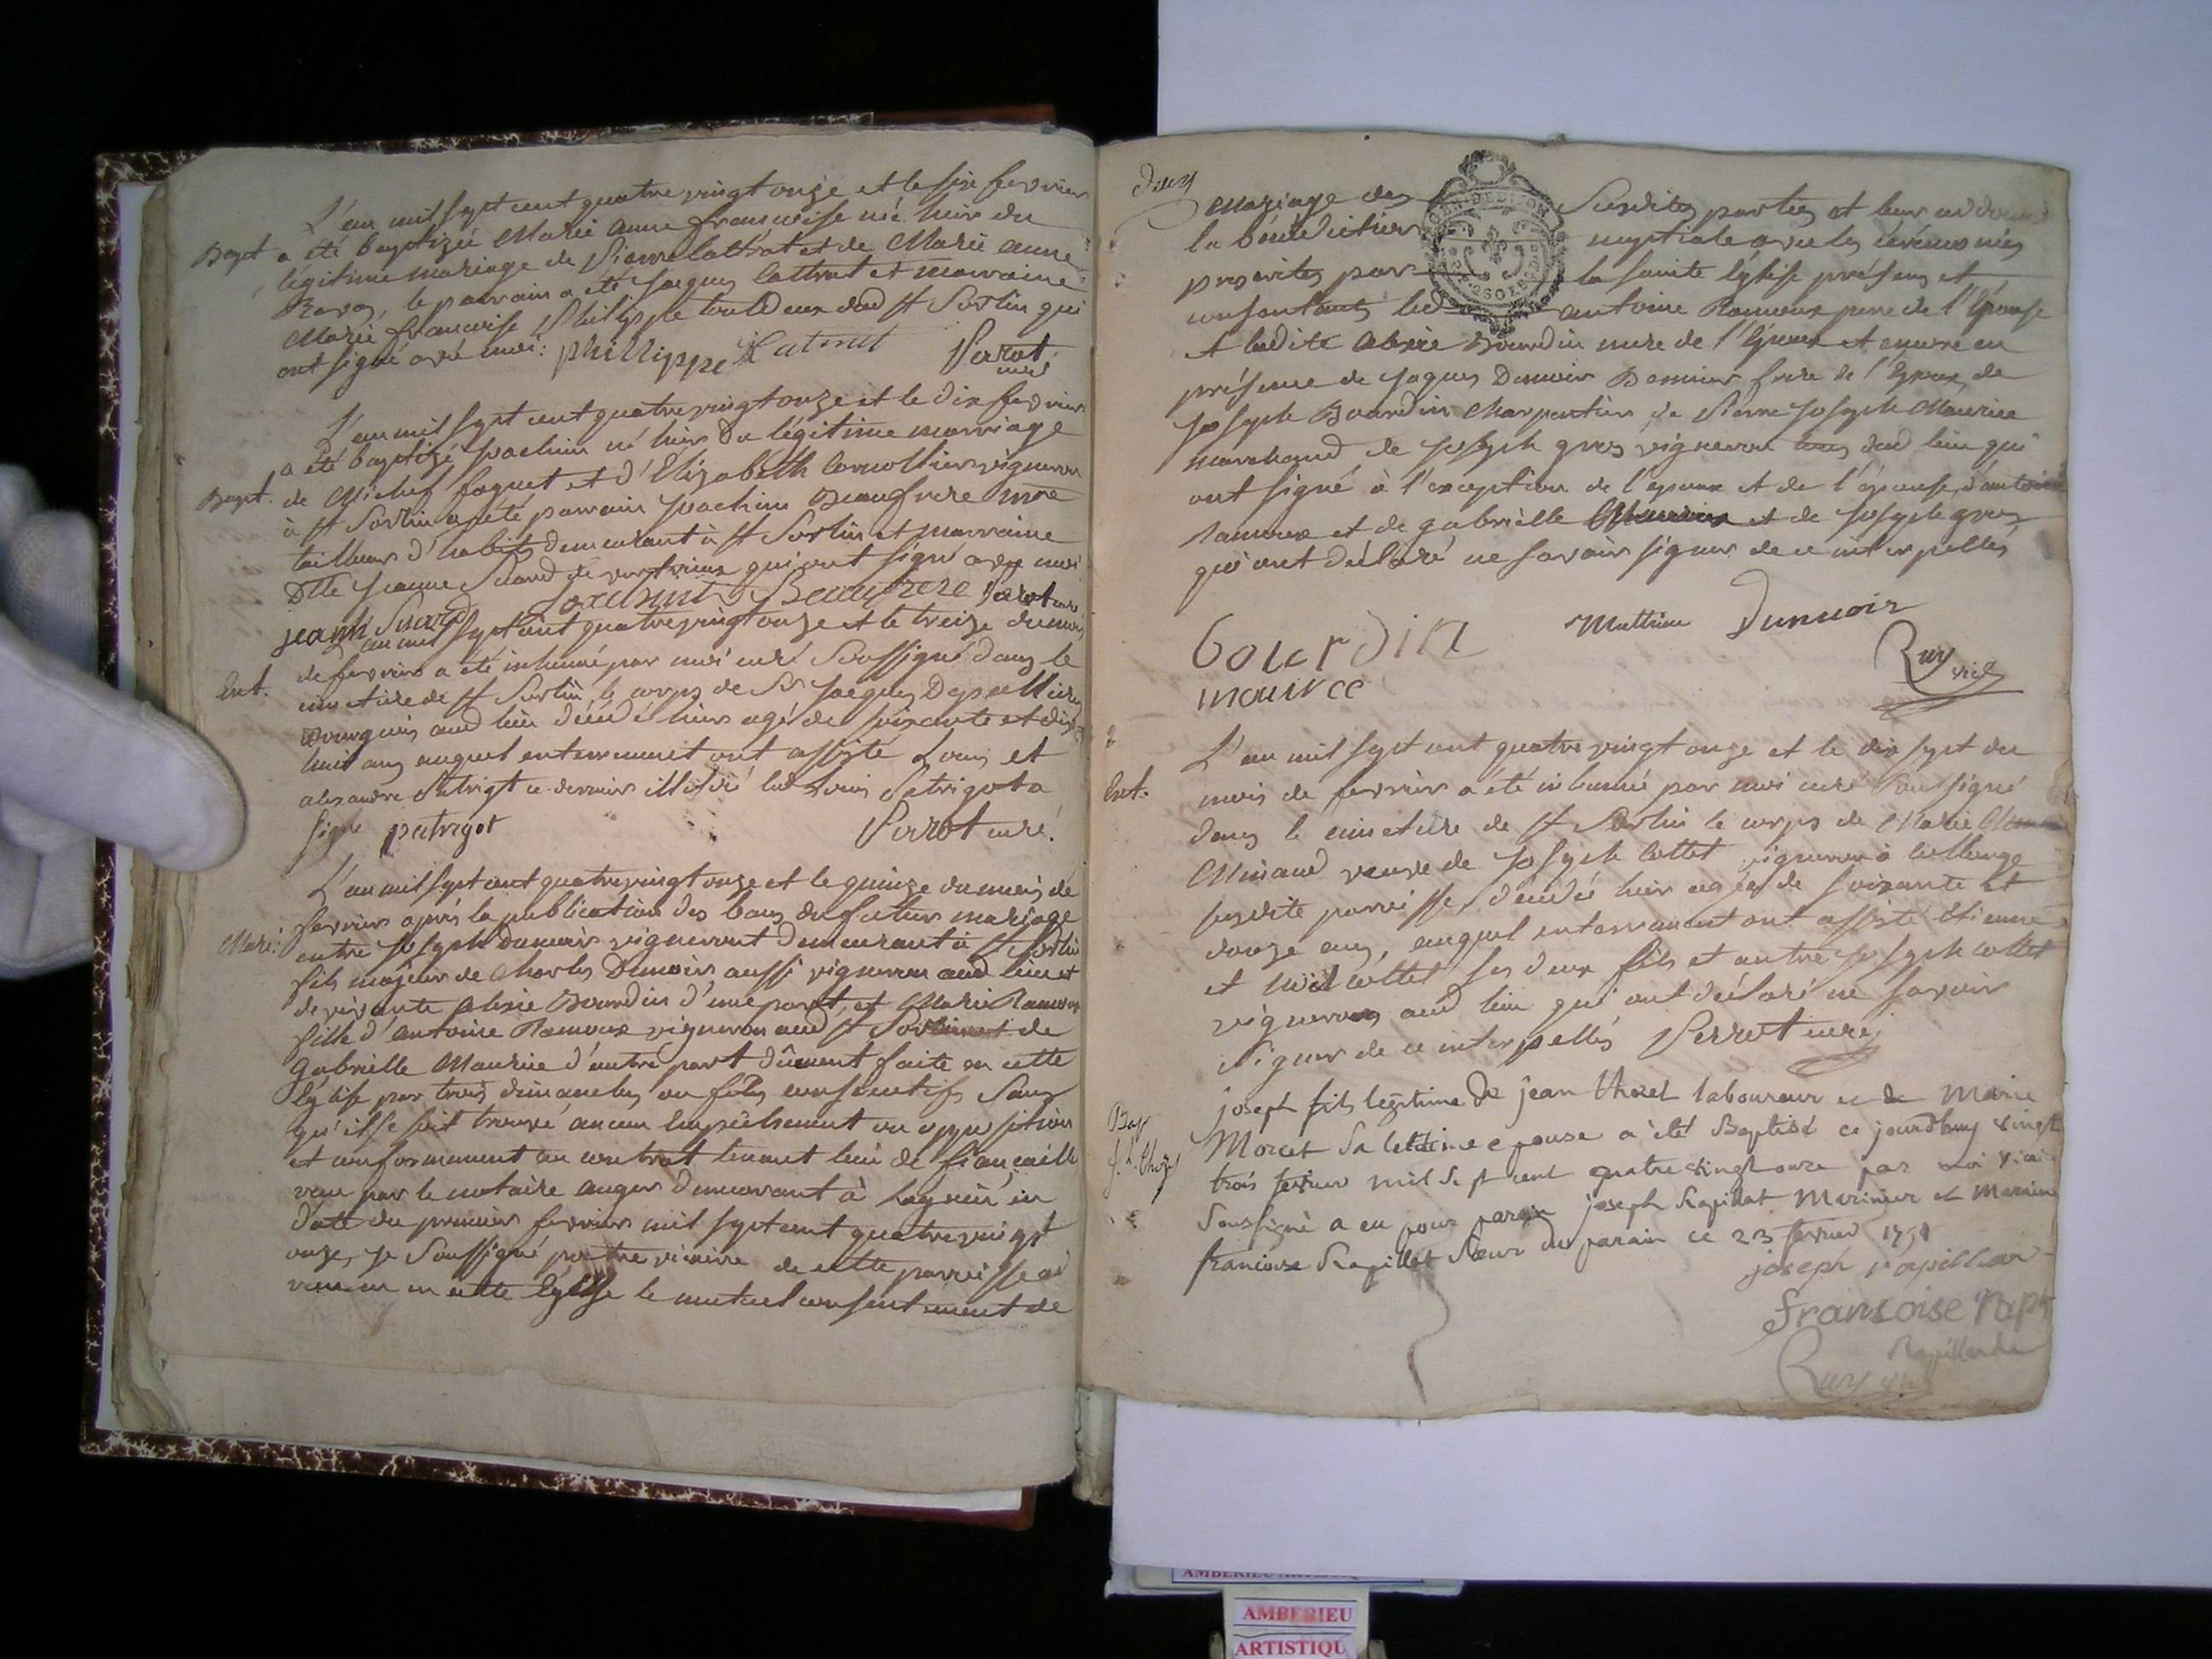 L'an mil sept cent quatre vingt onze et le six fevrier
Bapt a été baptizée Marie anne francoise née hier du
légitime mariage de Pierre lattrat et de Marie anne
le parrain a été jacques lattrat et marraine
Marie francoise Philippe tout deux dud st Sorlin qui
ont signé avec moi: phillippe Latrat Perrot curé
L'an mil sept cent quatre vingt onze et le dix fevrier
a été baptizé joachim né hier du légitime marriage
Bapt. de Michel foquet et d'Elizabeth Cornollier vigneron
à st Sorlin a été parrain joachim Beaufrere mtre
tailleur d'habits demeurant à st Sorlin et marraine
Dlle jeanne Suard de qui ont signé avec moi
jeanne Suard joachim Beaufrere Perrot curé
L'an mil sept cent quatre vingt onze et le treize du mois
de fevrier a été inhumé par moi curé soussigné dans le
Ent. cimetiere de st Sorlin le corps de Sr jacques
bourgeois aud lieu décédé hier agé de soixante et dix
huit ans auquel enterrement ont assisté Louis et
alexandre Patrigot ce dernier illitéré led Louis Patrigot a
signé patrigot Perrot curé.
L'an mil sept cent quatre vingt onze et le quinze du mois de
fevrier après la publication des bans du futur mariage
Mari: entre joseph dunoir vigneront demeurant à st Sorlin
fils majeur de Charles Dunoir aussi vigneron aud lieu et
de vivante alexie Bourdin d'une part, et Marie Ramoux
fille d'antoine Ramoux vigneron aud st Sorlin et de
Gabrielle Maurice d'autre part dûement faite en cette
Eglise par trois dimanches ou fêtes consecutifs sans
qu'il se soit trouvé aucun Empêchement ou opposition
et conformement au contrat tenant lieu de fiancaille
recu par le notaire auger demeurant à lagnieu en
date du premier fevrier mil sept cent quatre vingt
onze, je soussigné pretre vicaire de cette parroisse ai
recu en cette Eglise le mutuel consentement de
mariage des susdites parties et leur ai donné
la bénédiction nuptiale avec les cérémonies
prescrites par la sainte Eglise présens et
consentants led antoine Ramoux pere de l'Epouse
et ladite alexie Bourdin mere de l'Epoux et encore en
présence de jaques Dunoir Dernier frere de l'Epoux, de
joseph Bourdin Charpentier, de Pierre joseph Maurice
marchand de joseph gros vigneron tous dud lieu qui
ont signé à l'exception de l'epoux et de l'épouse, d'antoine
ramoux et de gabrielle Maurice et de joseph gros
qui ont déclaré ne savoir signer de ce interpellés
bourdin Mathieu Dunoir
maurice Ruy vic
L'an mil sept cent quatre vingt onze et le dix sept du
Ent. mois de fevrier a été inhumé par moi curé soussigné
dans le cimetiere de st Sorlin le corps de Marie
Minaud veuve de joseph Collet vigneron à
susdite parroisse, décédée hier agée de soixante et
douze ans, auquel enterrement ont assisté Etienne
et noël collet ses deux fils et autre joseph collet
vigneron aud lieu qui ont déclaré ne savoir
signer de ce interpellés Perrot curé
joseph fils legitime de jean thozet laboureur et de Marie
Bap Morcet sa letitime epouse a été Baptisé ce jourdhuy vingt
trois fevrier mil sept cent quatre vingt onze par moi vicai
soussigné a eu pour parain joseph Rapillat Marinier et Marene
francoise Rapillat sœur du parain ce 23 fevrier 1791
joseph rapillar
francoise rap
Ruy vic
AMBERIEU
ARTISTIQU